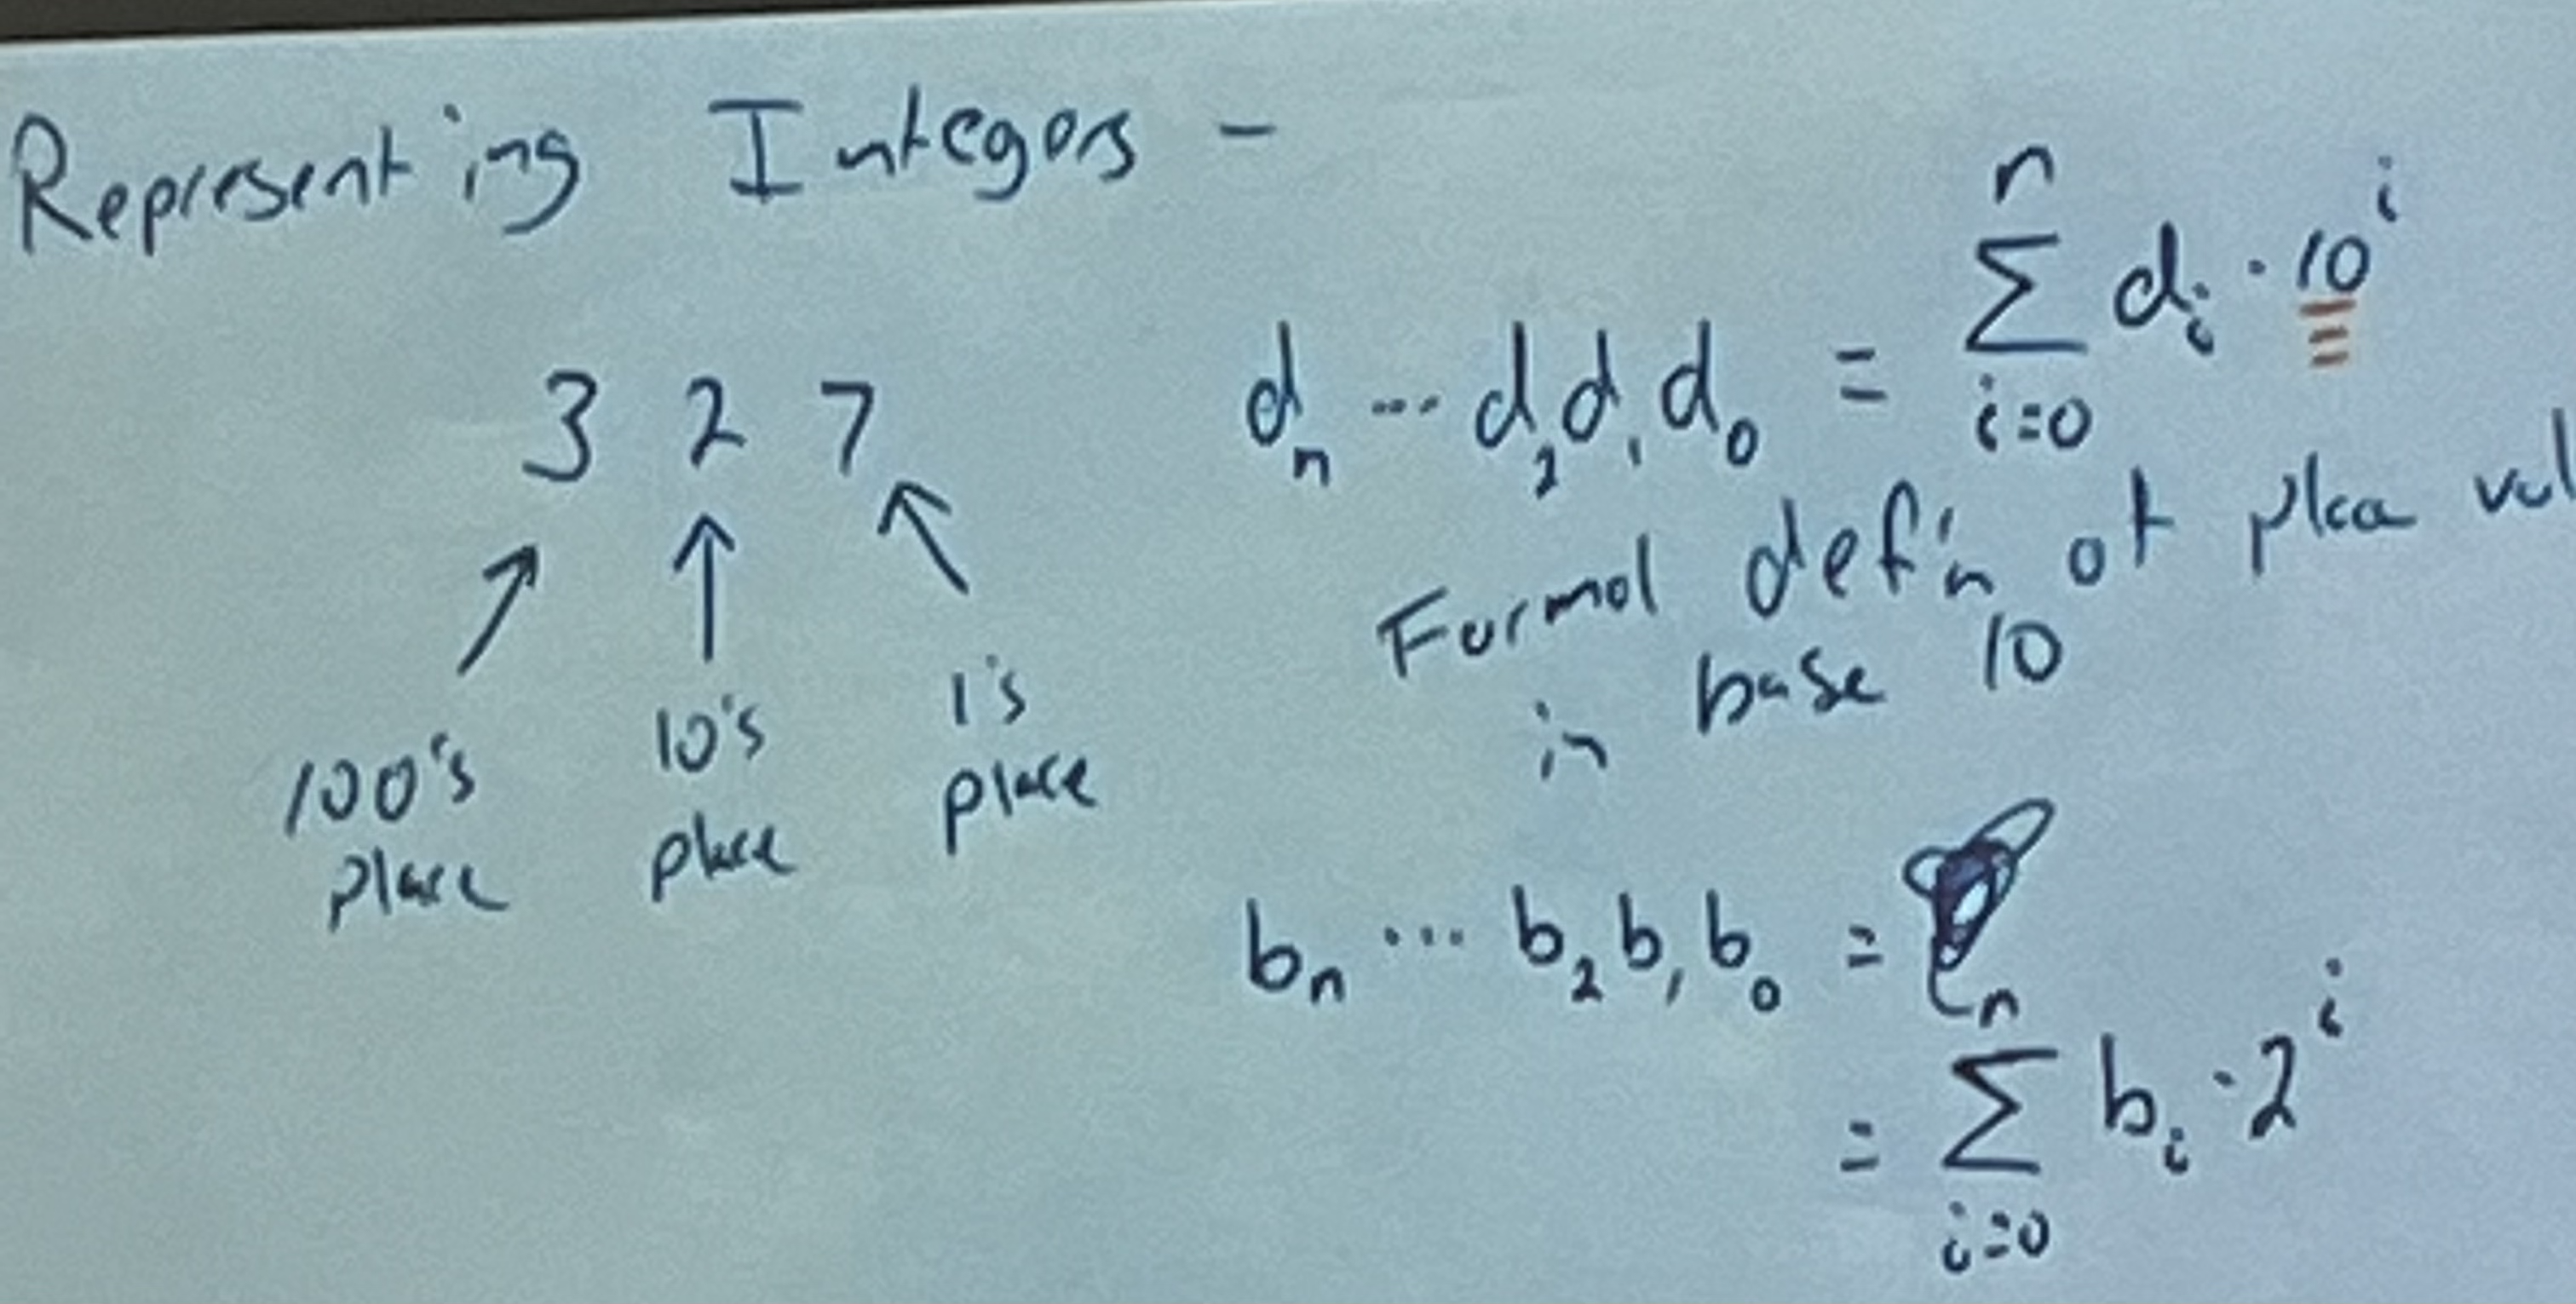 Representing Integers -
3 2 7
100's place
10's place
1's place
dₙ ... d₂d₁d₀ = ∑ⁿᵢ₌₀ dᵢ · 10ⁱ
Formal def'n of place val
in base 10
bₙ ... b₂b₁b₀ =
= ∑ⁿᵢ₌₀ bᵢ · 2ⁱ